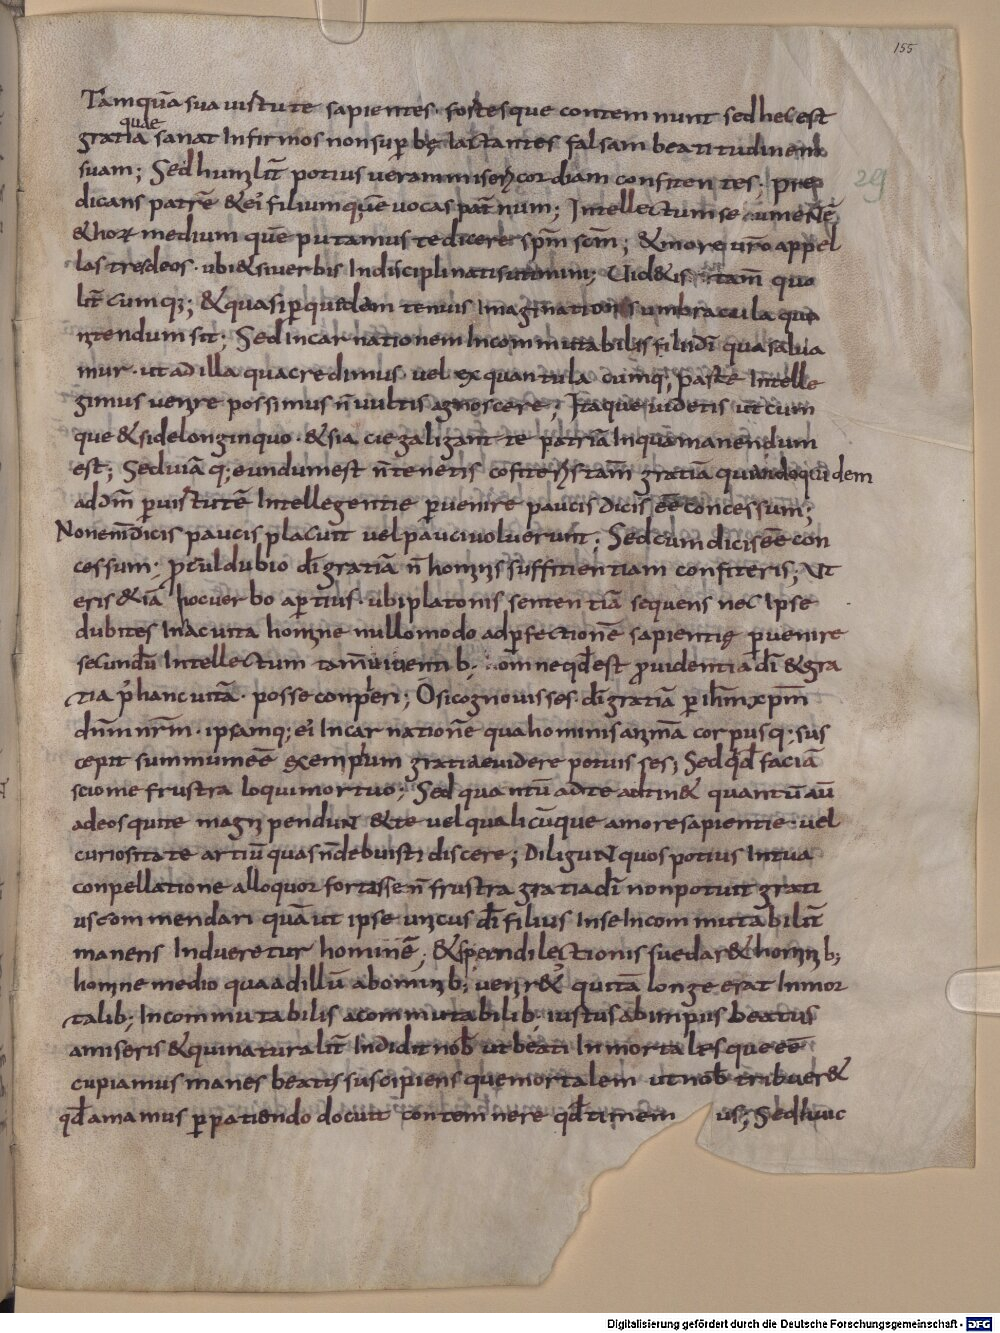 155
Tamquā sua uirtute sapientes. fortesque contemnunt sed hec est
quae
gratia sanat Infirmos non sup̄bę Iactantes falsam beatitudinem
suam; Sed humilit̄ potius ueram misericordiam confitentes; prę
29
dicans patrē & ei' filium quē uocas pat̄num; Intellectum seu mentē
& hor̄ medium quē putamus te dicere sp̄m sc̄m; & more ur̄o appel
las tres deos. ubi & si uerbis Indisciplinatis utimini; Uid&is tam̄ quo
lit̄ cumq; & quasi p̄ quędam tenuis Imaginationis umbracula quo
ntendum sit; Sed incarnationem Incommutabilis filii dī qua salua
mur. ut ad illa quae credimus. uel ex quantula cumq; parte Intelle
gimus uenire possimus n̄ uultis agnoscere; Itaque uidetis utcum
que & si de longinquo. & si acie caligante patriā In qua manendum
est; Sed uiā q; eundum est n̄ tenetis cōfiteris tam̄ gratiā quandoquidem
ad dm̄ p̄ uirtutē Intellegentie p̄uenire paucis dicis ēē concessum;
Non em̄ dicis paucis placuit uel pauci uoluerunt; Sed cum dicis ēē con
cessum; procul dubio dī gratiā n̄ hominis suffitientiam confiteris; Ut
eris & iā hoc uerbo ap̄tius. ubi platonis sententiā sequens nec Ipse
dubites In ac uita homine nullo modo ad p̄fectionē sapientię p̄uenire
secundū Intellectum tam̄ uiuentib; om̄ne qd̄ est p̄uidentia dī & gra
tia p' hanc uitā. posse conpleri; O si cognouisses dī gratiā p̄ ih̄m xp̄m
dn̄m nr̄m. ipsamq; ei' Incarnationē qua hominis animā corpusq; sus
cepit summum ēē exemplum gratiae uidere potuisses; Sed qd̄ faciā
scio me frustra loqui mortuo; Sed quantū ad te adtin& quantū aū
ad eos qui te magni pendunt & te uel qualicūque amore sapientie. uel
curiositate artiū quas n̄ debuisti discere; Diligunt quos potius In tua
conpellatione alloquor fortasse n̄ frustra gratia dī non potuit grati
us commendari quā ut ipse unicus dī filius In se Incommutabilit̄
manens Indueretur hominē; & spem dilectionis suę dar& hominib;
homine medio qua ad illū ab hominib; uenir& qui tā longe erat Inmor
talib; Incommutabilis a commutabilib; iustus ab impiis beatus
a miseris & qui naturalit̄ Indidit nob̄ ut beati Inmortalesque ēē
cupiamus manes beatis suscipiens que mortalem ut nob̄ tribuer&
qd̄ amamus p̄patiendo docuit contemnere qd̄ timem us; Sed huic
Digitalisierung gefördert durch die Deutsche Forschungsgemeinschaft - DFG